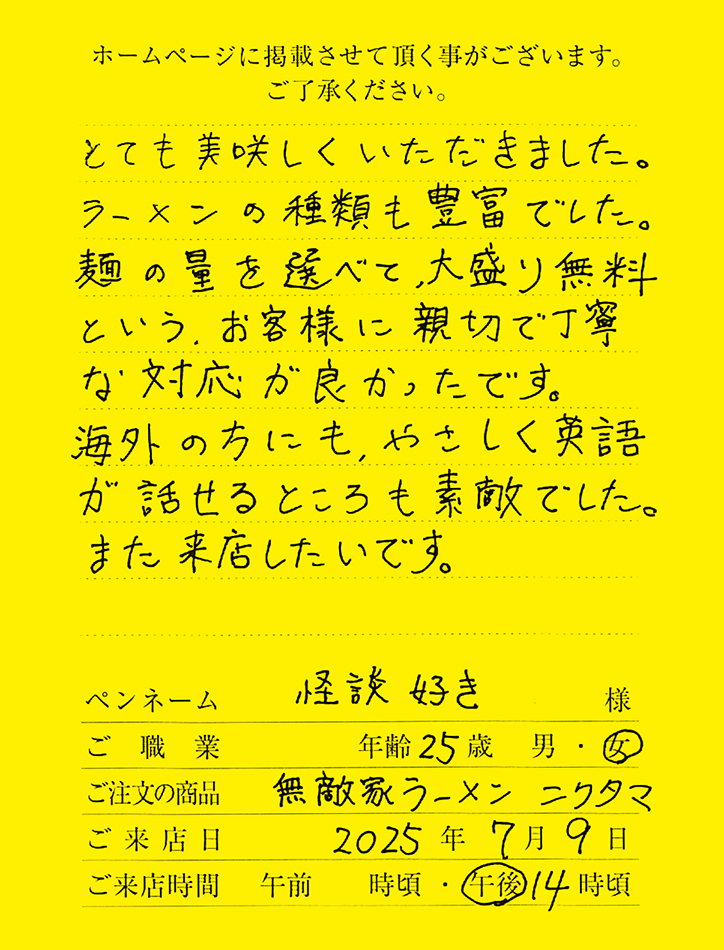 ホームページに掲載させて頂く事がございます。
ご了承ください。
とても美味しくいただきました。
ラーメンの種類も豊富でした。
麺の量を選べて、大盛り無料
という、お客様に親切で丁寧
な対応が良かったです。
海外の方にも、やさしく英語
が話せるところも素敵でした。
また来店したいです。
ペンネーム 怪談好き 様
ご職業 年齢 25 歳 男・女
ご注文の商品 無敵家ラーメン ニクタマ
ご来店日 2025 年 7 月 9 日
ご来店時間 午前 時頃・午後 14 時頃